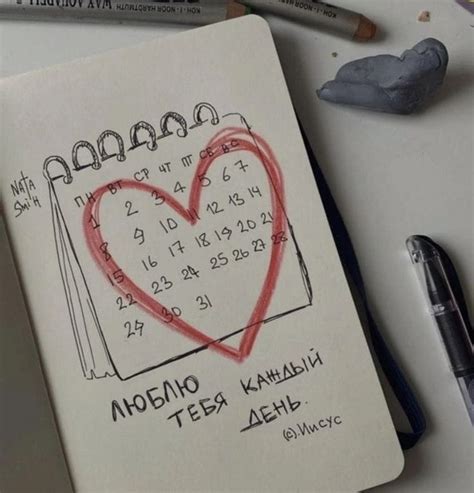 WAX AQUARELL
KOH-I-NOOR HARDTMUTH
KOH-I-NOOR
Nata
Smith
ПН ВТ СР ЧТ ПТ СБ ВС
1 2 3 4 5 6 7
8 9 10 11 12 13 14
15 16 17 18 19 20 21
22 23 24 25 26 27 28
29 30 31
ЛЮБЛЮ
ТЕБЯ КАЖДЫЙ
ДЕНЬ.
(с).Иисус